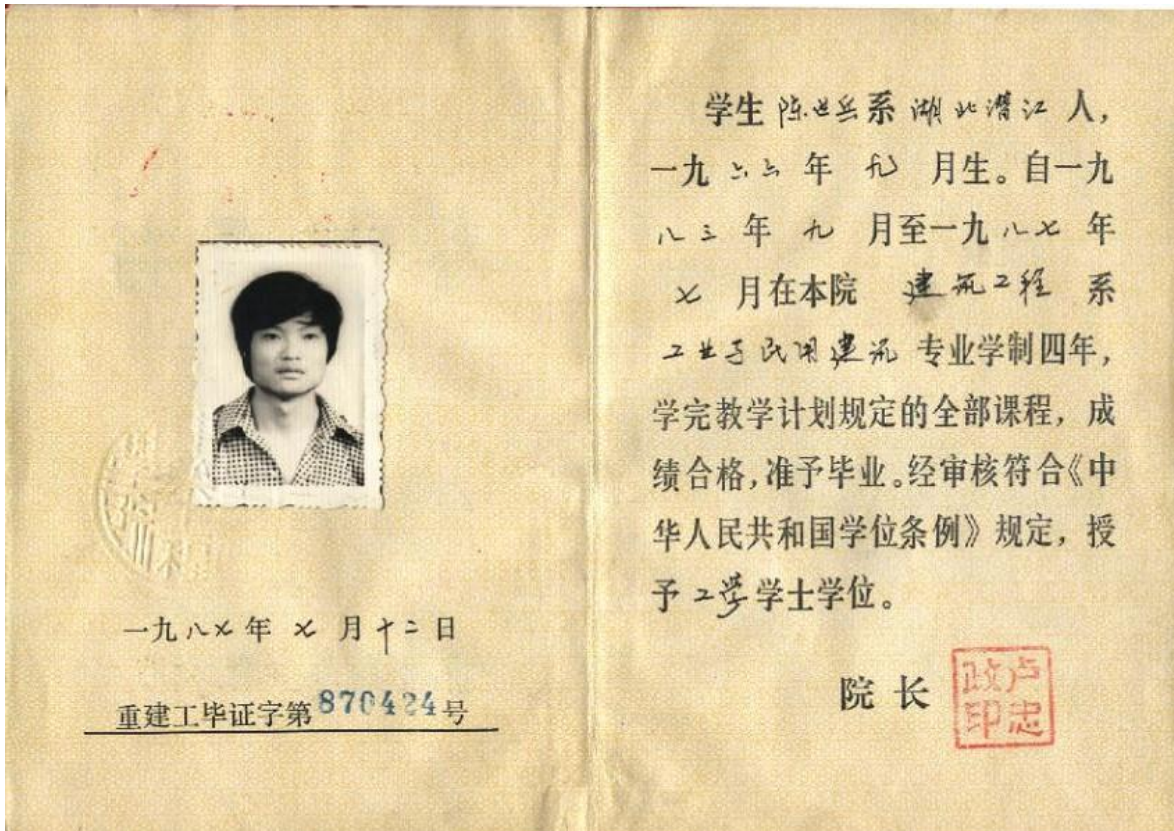 一九八七年七月十二日
重建工毕证字第870424号
学生陈世兵系湖北潜江人，
一九六六年九月生。自一九
八三年九月至一九八七年
七月在本院 建筑工程 系
工业与民用建筑 专业学制四年，
学完教学计划规定的全部课程，成
绩合格，准予毕业。经审核符合《中
华人民共和国学位条例》规定，授
予工学学士学位。
院长
卢忠政印